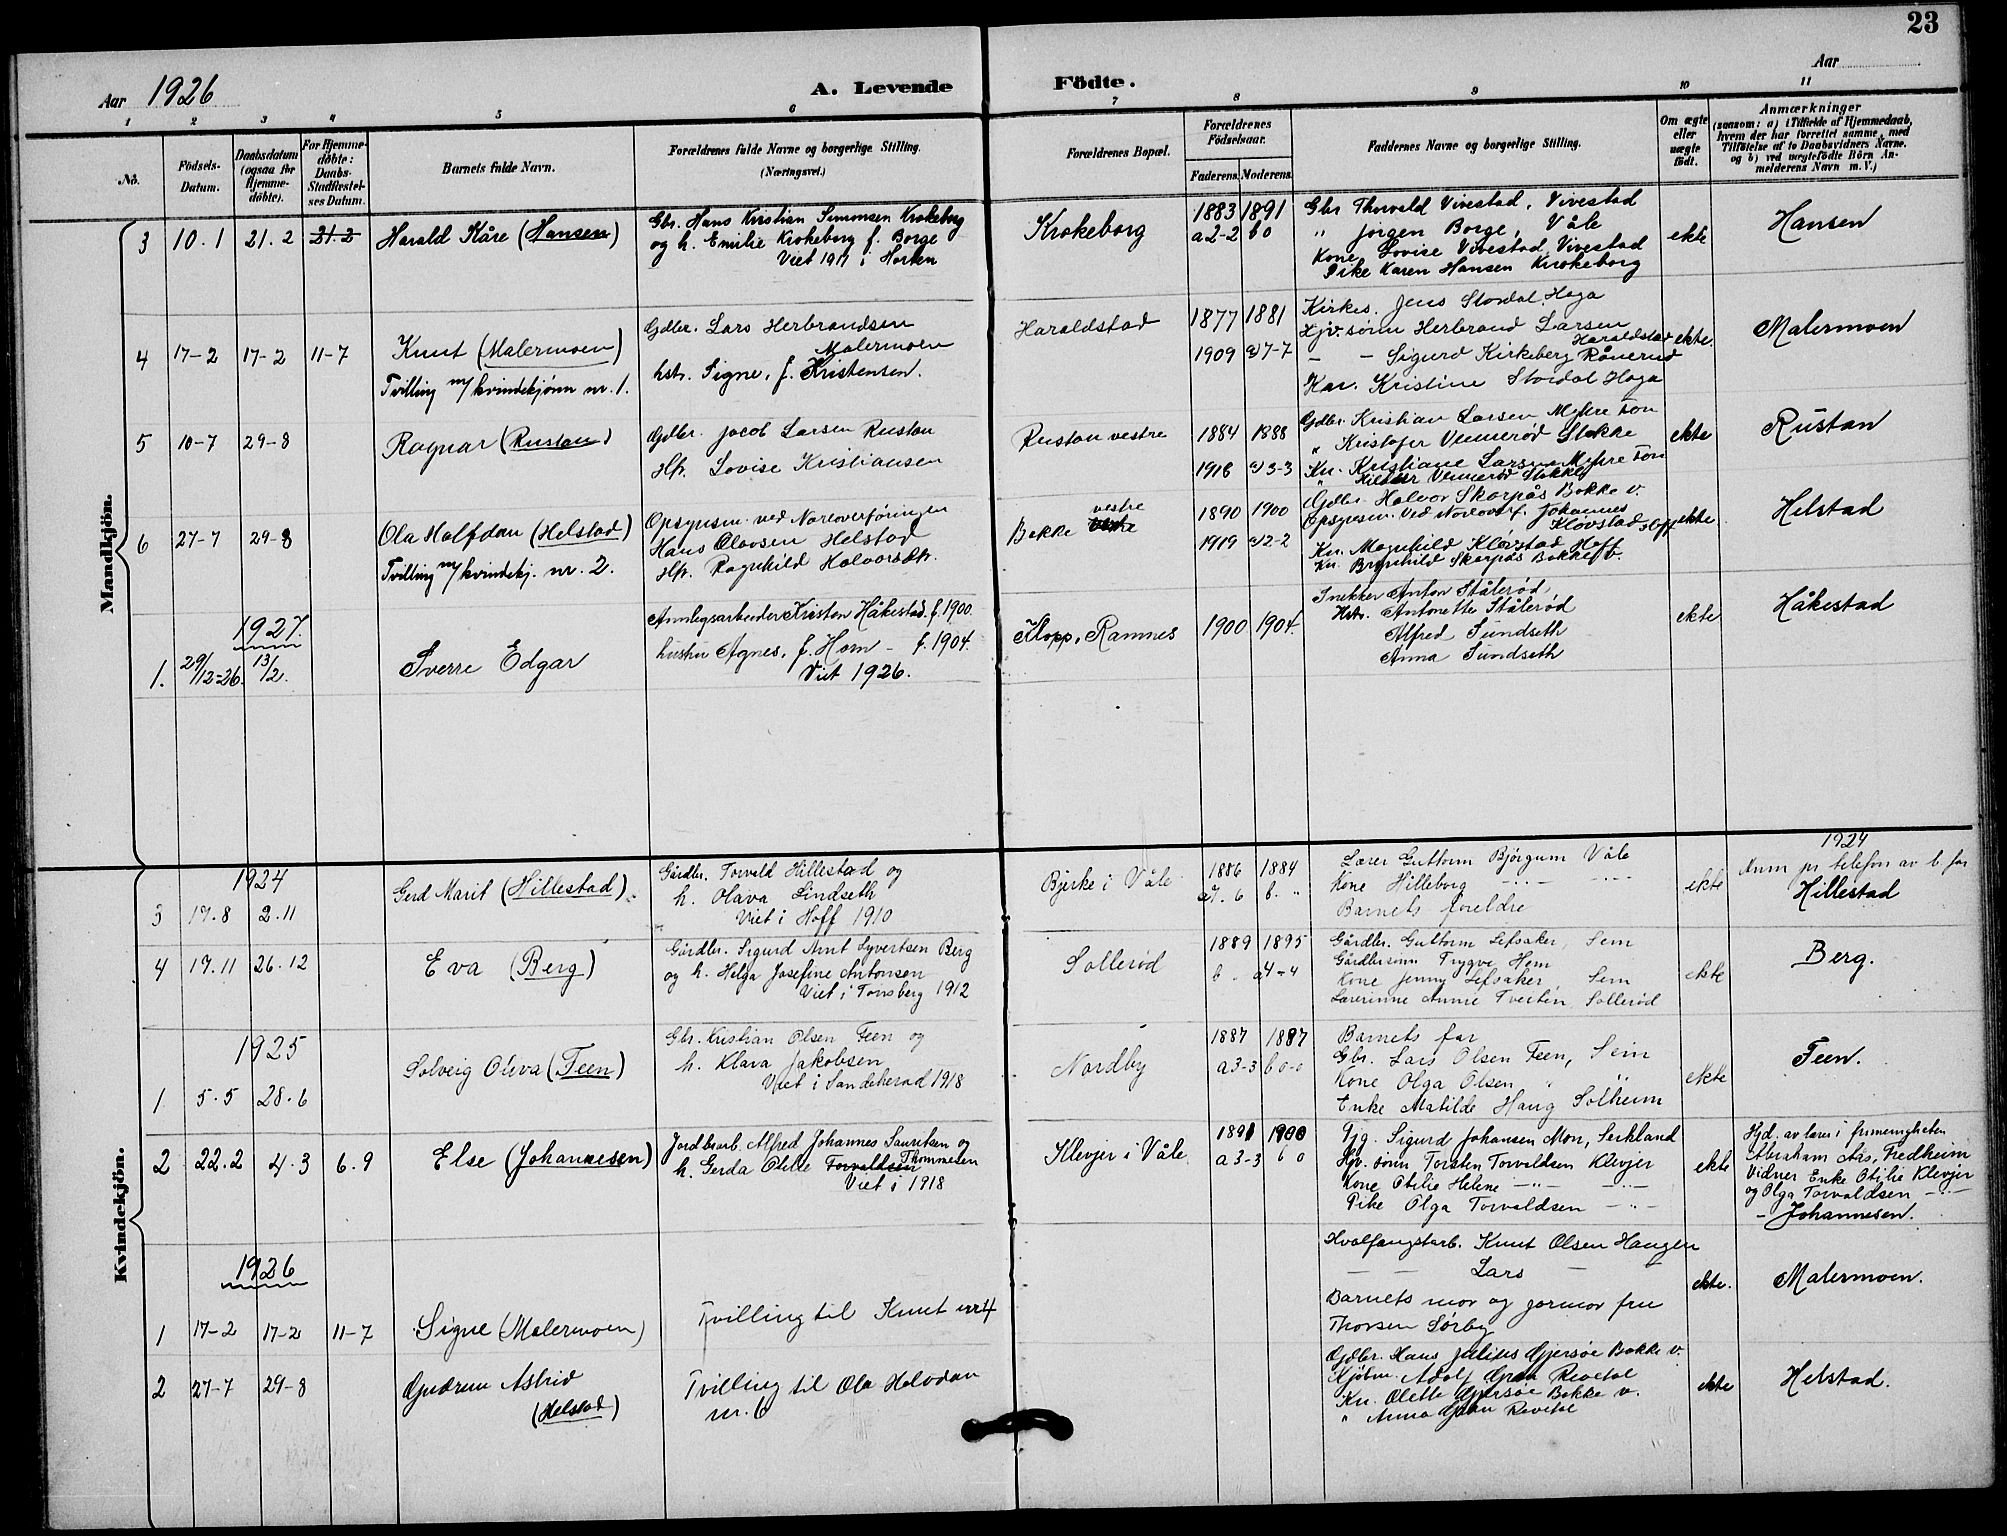 23
Aar 1926
A. Levende Födte.
Aar
1 2 3 4 5 6 7 8 9 10 11
No.
Födsels-Datum.
Daabsdatum (ogsaa for Hjemme-döbte).
For Hjemme-döbte: Daabs-Stadfæstel-ses Datum.
Barnets fulde Navn.
Forældrenes fulde Navne og borgerlige Stilling. (Næringsvei.)
Forældrenes Bopæl.
Forældrenes Födselsaar.
Faderens. Moderens.
Faddernes Navne og borgerlige Stilling.
Om ægte eller uægte födt.
Anmærkninger
(saasom: a) i Tilfælde af Hjemmedaab, hvem der har forrettet samme, med Tilföielse af to Daabsvidners Navne. og b) ved uægtefödte Börn An-melderens Navn m. V.)
Mandkjön.
3 10.1 21.2 21.2 Harald Kåre (Hansen)
Gbr. Hans Kristian Simonsen Krokeborg
og h. Emilie Krokeborg f. Borge
Viet 1911 i Horten
Krokeborg
1883 1891
a2-2 b0
Gbr Thorvald Vivestad, Vivestad
" Jørgen Borge, Våle
Kone Lovise Vivestad, Vivestad
Pike Karen Hansen Krokeborg
ekte
Hansen
4 17-2 17-2 11-7 Knut (Malermoen)
Tvilling m/ kvindekjønn nr. 1.
Gdbr. Lars Herbrandsen
Malermoen
hstr. Signe, f. Kristensen.
Haraldstad
1877 1881
1909 a)7-7
Kirkes. Jens Stordal Haga
Hjv. sønn Herbrand Larsen
Haraldstad
- - Sigurd Kirkeberg Rånerud
Kar. Kristine Stordal Haga
ekte.
Malermoen
5 10-7 29-8 Ragnar (Rustan)
Gdbr. Jacob Larsen Rustan
Hfr. Lovise Kristiansen
Rustan vestre
1884 1888
1916 a)3-3
Gdbr. Kristian Larsen Myhre Fon
" Kristofer Vennerød Stokke
Kn. Kristiane Larsen Myhre Fon
" Vennerød Stokke
ekte
Rustan
6 27-7 29-8 Ola Halfdan (Helstad)
Tvilling m/ kvindekj. nr. 2.
Opsynsm. ved Noreoverføringen
Hans Olavsen Helstad
Hfr. Ragnhild Halvorsdtr.
vestre
Bakke
1890 1900
1919 a)2-2
Gdbr. Halvor Skarpås Bakke v.
Opsynsm. ved Noreoverf. Johannes
Kløvstad Hoff
Kn. Magnhild Kløvstad Hoff
Kn. Brynhild Skarpås Bakke v.
ekte
Helstad
1927.
1. 29/12-26. 13/2. Sverre Edgar
Annlegsarbeider Kristan Håkestad. f. 1900.
hustru Agnes, f. Horn - f. 1904.
Viet 1926.
Klopp, Ramnes
1900 1904.
Snekker Anton Stålerød,
Hstr. Antonette Stålerød
Alfred Sundseth
Anna Sundseth
ekte
Håkestad
Kvindekjön.
1924
3 17.8 2.11 Gerd Marit (Hillestad).
Gårdbr. Torvald Hillestad og
h. Olava Lindseth
Viet i Hoff 1910
Bjerke i Våle
1886 1884
a7.6 b. "
Lærer Guttorm Bjørgum Våle
Kone Hilleborg - " - - " -
Barnets foreldre
ekte
1924
Anm pr telefon av b. far
Hillestad
4 17.11 26.12 Eva (Berg)
Gårdbr. Sigurd Arnt Syvertsen Berg
og h. Helga Josefine Antonsen
Viet i Tønsberg 1912
Sollerød
1889 1895
b - a4-4
Gårdbr. Guttorm Lefsaker, Sem
Gårdbrsønn Trygve Hem
Kone Jenny Lefsaker, Sem
Lærerinne Annie Tveiten, Sollerød
ekte
Berg.
1925
1 5.5 28.6 Solveig Oliva (Feen)
Gbr. Kristian Olsen Feen og
h. Klara Jakobsen
Viet i Sandeherad 1918
Nordby
1887 1887
a3-3 b0-0
Barnets far
Gbr. Lars Olsen Feen, Sem
Kone Olga Olsen " "
Enke Matilde Haug Solheim
ekte
Feen.
2 22.2 4.3 6.9 Else (Johannesen)
Jordbrarb. Alfred Johannes Lauritsen og
h. Gerda Otilie Torvaldsen Thommesen
Viet i 1918
Klevjer i Våle
1891 1900
a3-3 b0
Gjg. Sigurd Johansen Mon, Serkland
Hjv. sønn Torsten Torvaldsen Klevjer
Kone Otilie Helene - " - - " -
Pike Olga Torvaldsen - " -
ekte
Hjd. av lærer i frimenigheten
Abraham Aas, Fredheim
Vidner Enke Otilie Klevjer
og Olga Torvaldsen - " -
- Johannesen.
1926
1 17-2 17-2 11-7 Signe (Malermoen)
Tvilling til Knut nr 4
Hvalfangstarb. Knut Olsen Haugen
- - Lars -
Barnets mor og jormor fru
Thorsen Sørby
ekte.
Malermoen.
2 27-7 29-8 Gudrun Astrid
(Helstad)
Tvilling til Ola Halvdan
nr. 6
Gdbr. Hans Julius Gjersøe Bakke v.
Kjøbm. Adolf Gran Revetal
Kn. Olette Gjersøe Bakke v.
" Anna Gran Revetal
ekte
Helstad.